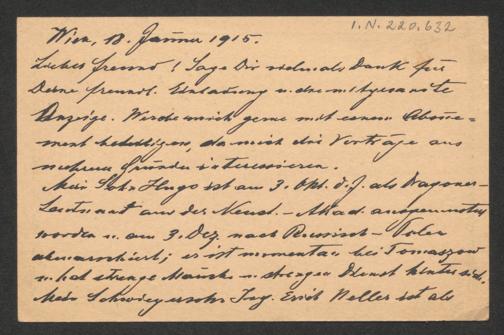 I.N. 220.632
Wien, 18. Jänner 1915.
Lieber Freund! Sage Dir vielmals Dank für
Deine freundl. Einladung u. die mitgesandte
Anzeige. Werde mich gerne mit einem Abonne-
ment beteiligen, da mich die Vorträge aus
mehreren Gründen interessieren.
Mein Sohn Hugo ist am 3. Okt. v. J. als Dragoner-
Leutnant aus der Neust. - Akad. ausgemustert
worden u. am 3. Dez. nach Russisch - Polen
abmarschiert; er ist momentan bei Tomaszow
u. hat strenge Märsche u. strengen Dienst hinter sich.
Mein Schwiegersohn Ing. Erich Weller ist als